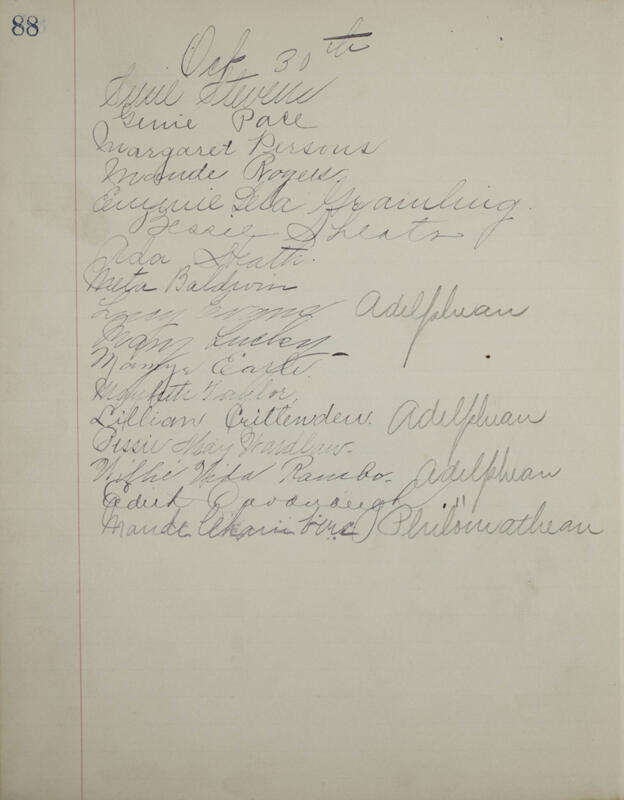 88
Oct 30th
Stevens
Genie Pace
Margaret Persons
Maude Rogers
Emmie Leta Grambling.
Bessie Sheats
Ada Heath.
Meta Baldwin
Lucy Evans Adelphean
Mary Lucky
Mamye Earle
Taylor,
Lillian Crittenden. Adelphean
May Wardlaw.
Willie Vida Rambo. Adelphean
Edith Cavanaugh
Maude Philomathean